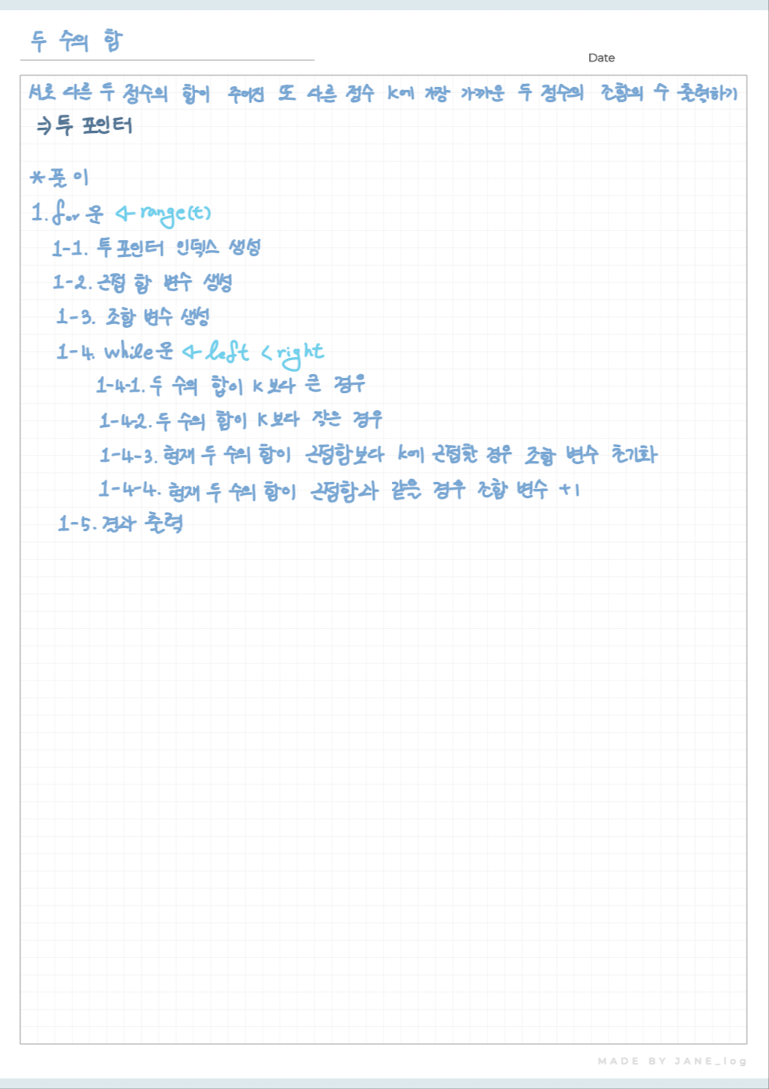 두 수의 합
Date
서로 다른 두 정수의 합이 주어진 또 다른 정수 K에 가장 가까운 두 정수의 조합의 수 출력하기
⇒ 투 포인터
*풀이
1. for문 ← range(t)
1-1. 투포인터 인덱스 생성
1-2. 근접 합 변수 생성
1-3. 조합 변수 생성
1-4. while문 ← left < right
1-4-1. 두 수의 합이 K보다 큰 경우
1-4-2. 두 수의 합이 K보다 작은 경우
1-4-3. 현재 두 수의 합이 근접합보다 k에 근접한 경우 조합 변수 초기화
1-4-4. 현재 두 수의 합이 근접합과 같은 경우 조합 변수 +1
1-5. 결과 출력
MADE BY JANE_log